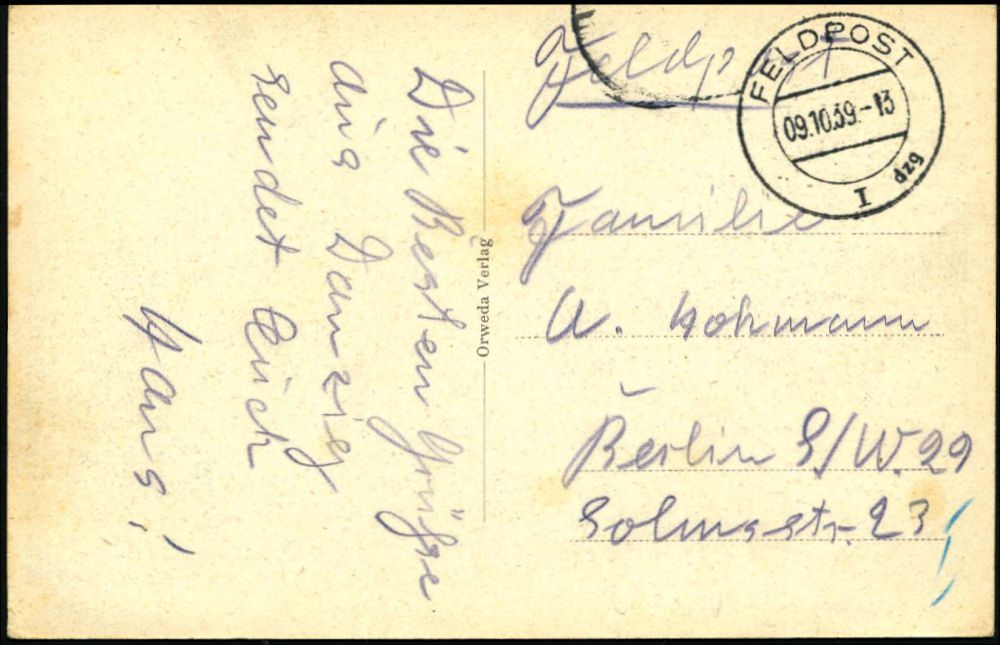 Die Besten Grüße
aus Danzig
sendet Euch
Hans!
Orweda Verlag
Feldpost
FELDPOST
09.10.39.-13
I
dzg
Familie
A. Hohmann
Berlin S/W.29
Solmsstr. 23